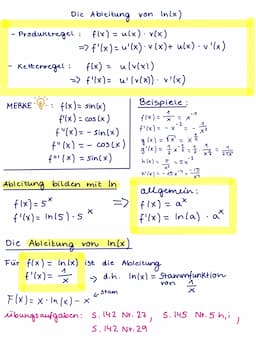 Die Ableitung von ln(x)
- Produktregel: f(x) = u(x) · v(x)
=> f'(x) = u'(x) · v(x) + u(x) · v'(x)
- Kettenregel: f(x) = u(v(x))
=> f'(x) = u'(v(x)) · v'(x)
MERKE: f(x) = sin(x)
f'(x) = cos(x)
f''(x) = - sin(x)
f'''(x) = - cos(x)
f''''(x) = sin(x)
Beispiele:
f(x) = 1/x = x⁻¹
f'(x) = -x⁻² = - 1/x²
g(x) = √x = x^(1/2)
Ableitung bilden mit ln
f(x) = 5^x
f'(x) = ln(5) · 5^x
=>
allgemein:
f(x) = a^x
f'(x) = ln(a) · a^x
Die Ableitung von ln(x)
Für f(x) = ln(x) ist die Ableitung
f'(x) = 1/x -> d.h. ln(x) = Stammfunktion von 1/x
F(x) = x · ln(x) - x
Übungsaufgaben: S. 142 Nr. 27, S. 145 Nr. 5 h, i,
S. 142 Nr. 29